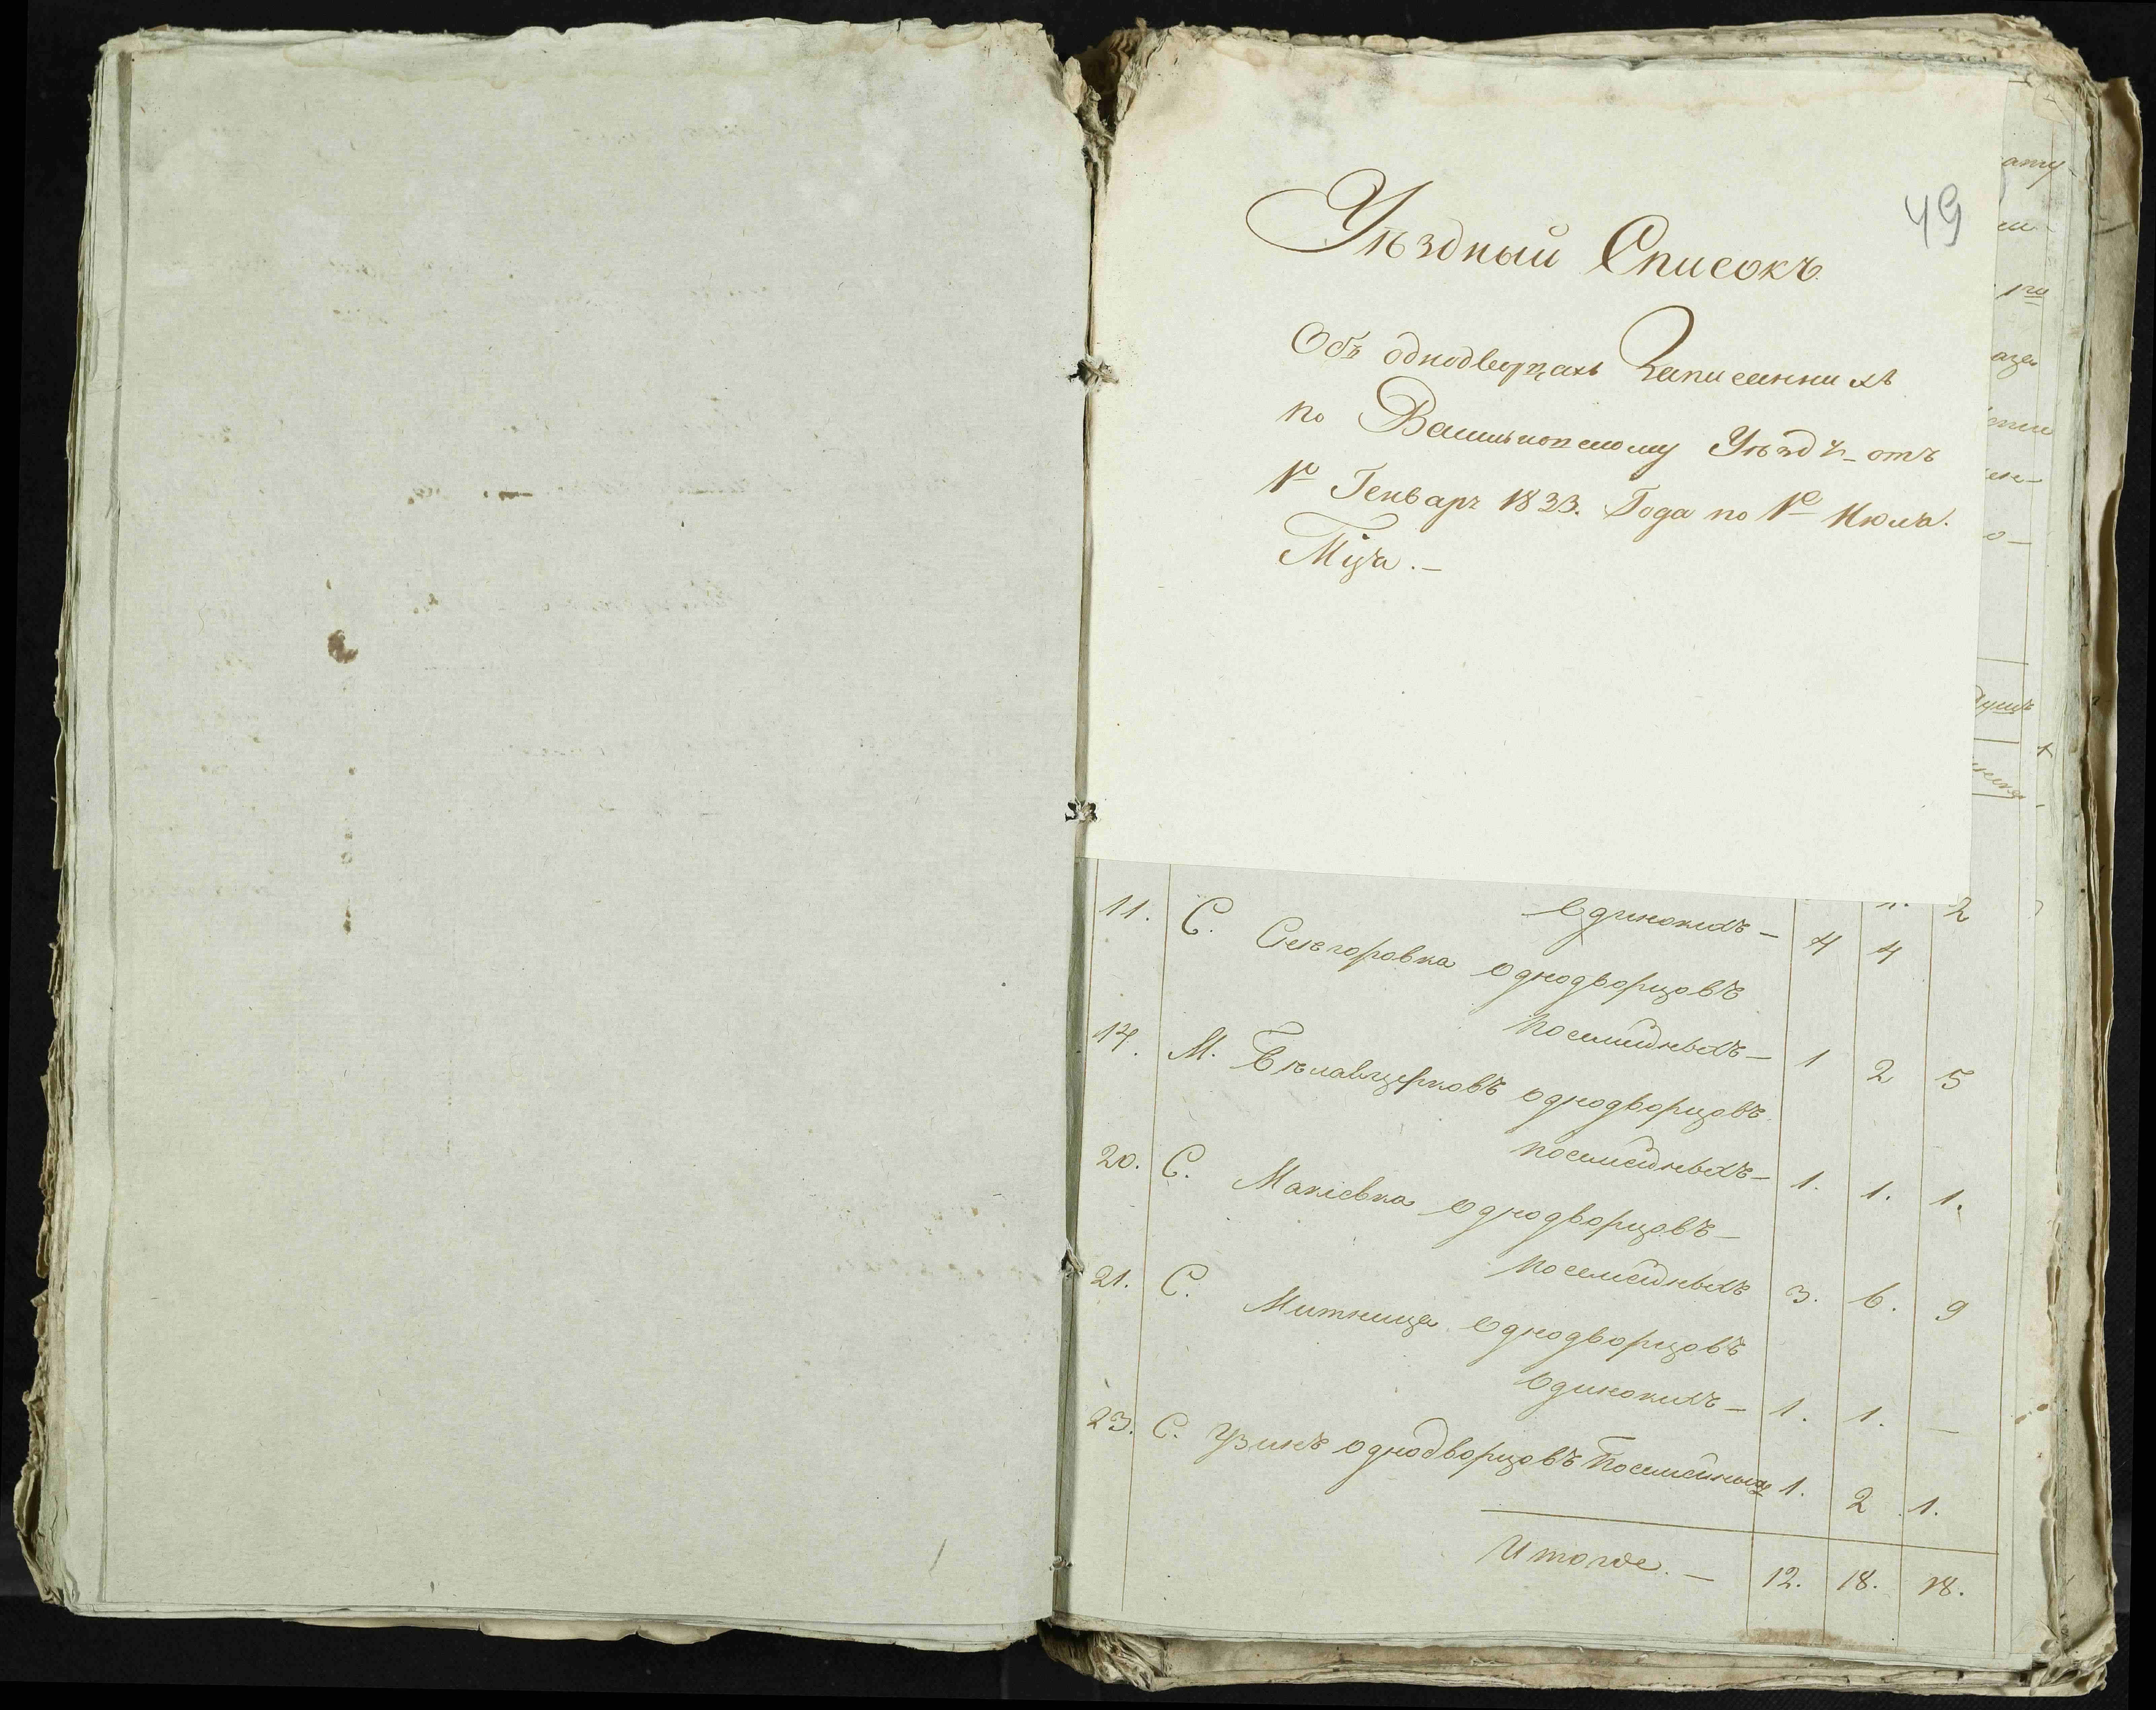 49
Уѣздный Списокъ
Объ однодворцахъ Записанныхъ
по Васильковскому Уѣзду отъ
1го Генваря 1833. Года по 1е Июля.
Мца.—
1. 2
Одинокихъ— 4 4
11. С. Снегоровка однодворцовъ
посемейныхъ— 1 2 5
14. М. Бѣлавцерковъ однодворцовъ
посемейныхъ— 1. 1. 1.
20. С. Макіевка однодворцовъ—
посемейныхъ 3. 6. 9
21. С. Митница однодворцовъ
Одинокихъ— 1. 1. —
23. С. Узинъ однодворцовъ посемейныхъ 1. 2 1.
Итого.— 12. 18. 18.